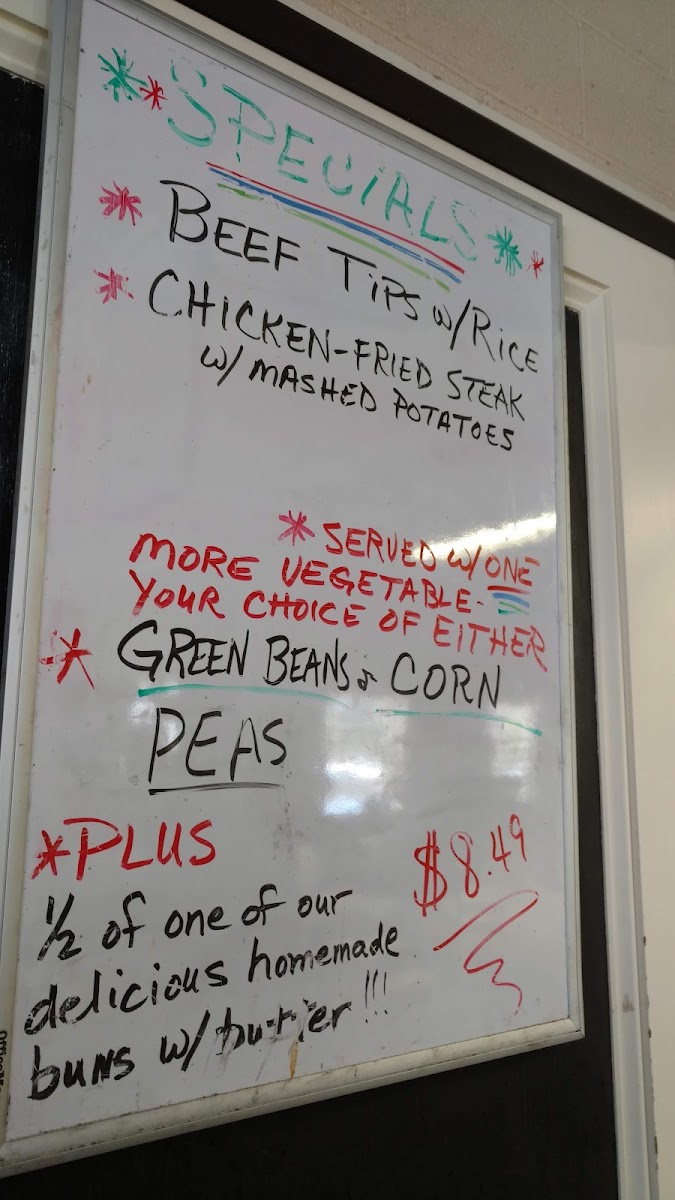 **SPECIALS**
* BEEF TIPS w/RICE
* CHICKEN-FRIED STEAK
w/ MASHED POTATOES
* SERVED w/ ONE
MORE VEGETABLE-
YOUR CHOICE OF EITHER
* GREEN BEANS & CORN
PEAS
*PLUS
$8.49
1/2 of one of our
delicious homemade
buns w/ butter!!!